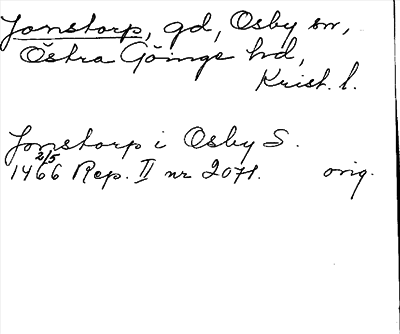 Jonstorp, gd, Osby sn,
Östra Göinge hd,
Krist. l.
Jonstorp i Osby S.
2/5
1466 Rep. II nr 2071. orig.